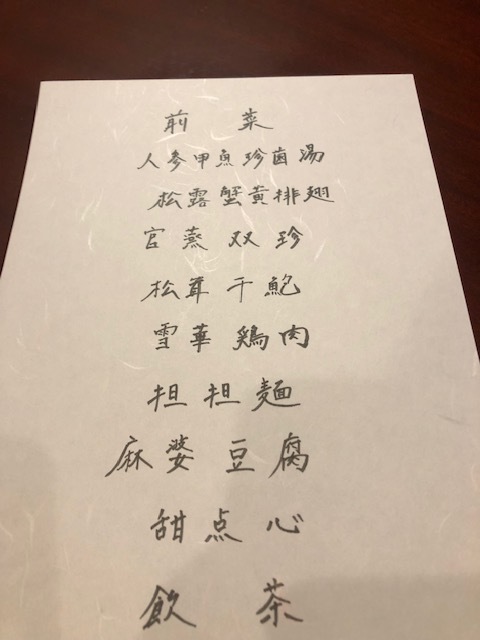 前菜
人参甲魚珍菌湯
松露蟹黄排翅
官燕双珍
松茸干鮑
雪華鶏肉
担担麺
麻婆豆腐
甜点心
飲茶